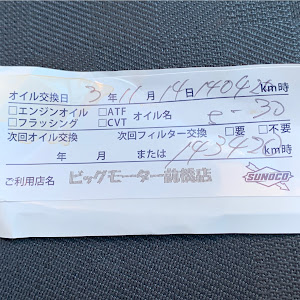 オイル交換日 3年11月14日140420km時
□エンジンオイル □ATF オイル名
□フラッシング □CVT e-30
次回オイル交換 次回フィルター交換 □要 □不要
年 月 または 143420km時
ご利用店名 ビッグモーター前橋店 SUNOCO